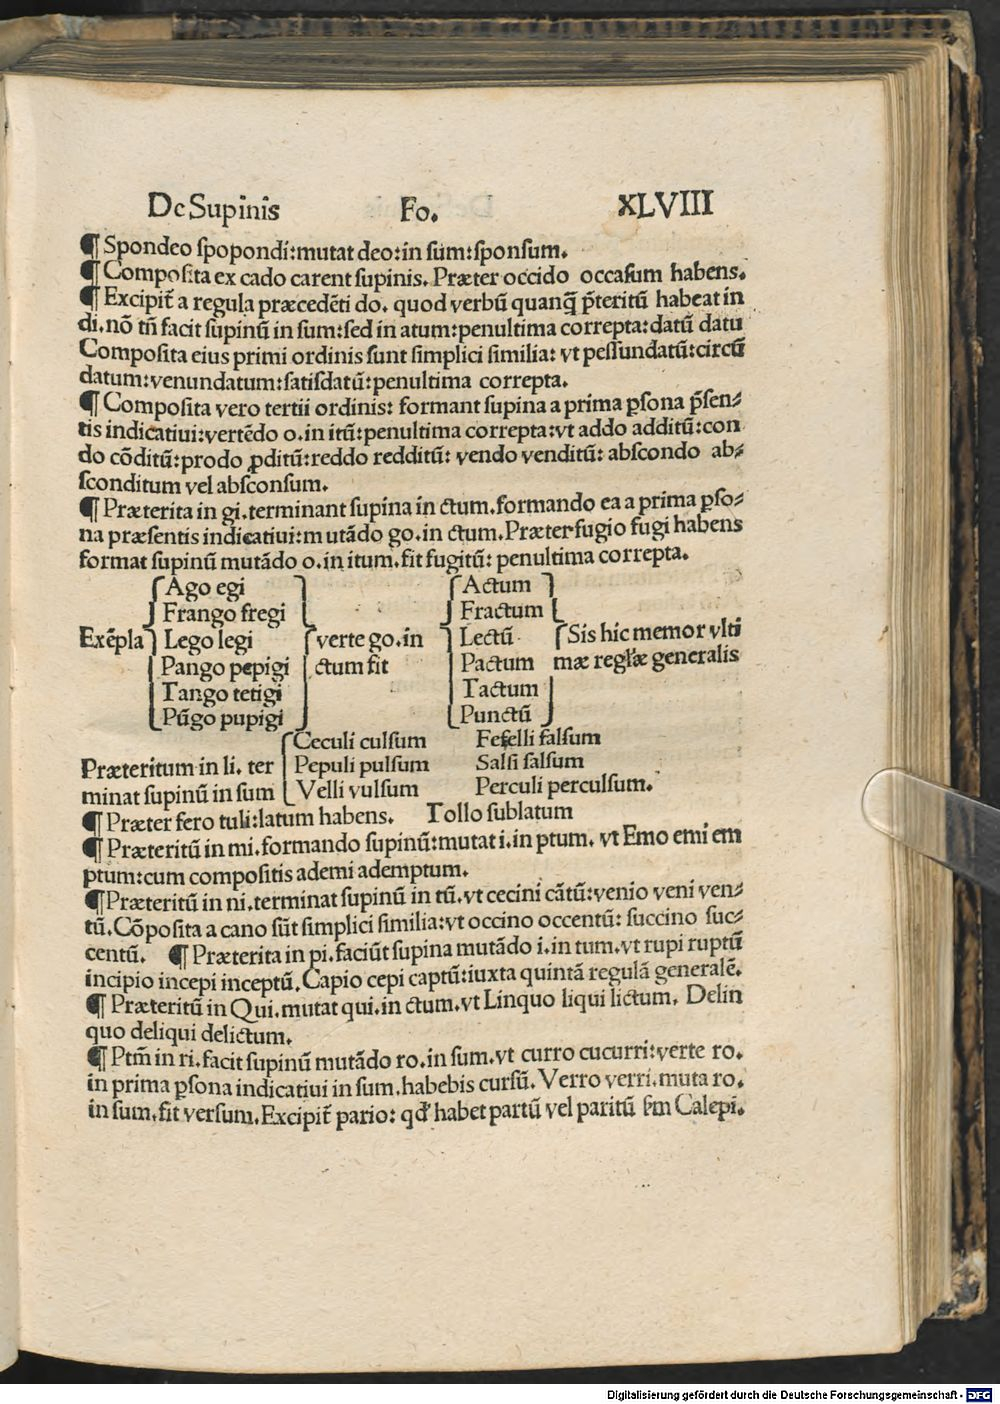 De Supinis Fo. XLVIII
¶ Spondeo ſpopondi:mutat deo:in ſum:ſponſum.
¶ Compoſita ex cado carent ſupinis. Præter occido occaſum habens.
¶ Excipit̃ a regula præcedẽti do. quod verbũ quanq̃ p̃teritũ habeat in
di. nõ tñ facit ſupinũ in ſum:ſed in atum:penultima correpta:datũ datu
Compoſita eius primi ordinis ſunt ſimplici ſimilia: vt peſſundatũ:circũ
datum:venundatum:ſatiſdatũ:penultima correpta.
¶ Compoſita vero tertii ordinis: formant ſupina a prima ꝑſona p̃ſen⸗
tis indicatiui:vertẽdo o.in itũ:penultima correpta:vt addo additũ:con
do cõditũ:prodo ꝓditũ:reddo redditũ: vendo venditũ: abſcondo ab⸗
ſconditum vel abſconſum.
¶ Præterita in gi.terminant ſupina in ctum.formando ea a prima ꝑſo⸗
na præſentis indicatiui:mutãdo go.in ctum.Præter fugio fugi habens
format ſupinũ mutãdo o.in itum.fit fugitũ: penultima correpta.
Ago egi Actum
Frango fregi Fractum
Exẽpla Lego legi verte go.in Lectũ Sis hic memor vlti
Pango pepigi ctum fit Pactum mæ regl̃æ generalis
Tango tetigi Tactum
Pũgo pupigi Punctũ
Ceculi culſum Fefelli falſum
Præteritum in li. ter Pepuli pulſum Salſi ſalſum
minat ſupinũ in ſum Velli vulſum Perculi perculſum.
¶ Præter fero tuli:latum habens. Tollo ſublatum
¶ Præteritũ in mi.formando ſupinũ:mutat i.in ptum. vt Emo emi em
ptum:cum compoſitis ademi ademptum.
¶ Præteritũ in ni.terminat ſupinũ in tũ.vt cecini cãtũ:venio veni ven⸗
tũ.Cõpoſita a cano sũt ſimplici ſimilia:vt occino occentũ: ſuccino ſuc⸗
centũ. ¶ Præterita in pi.faciũt ſupina mutãdo i.in tum.vt rupi ruptũ
incipio incepi inceptũ.Capio cepi captũ:iuxta quintã regulã generalẽ.
¶ Præteritũ in Qui.mutat qui.in ctum.vt Linquo liqui lictum. Delin
quo deliqui delictum.
¶ Ptm̃ in ri.facit ſupinũ mutãdo ro.in ſum.vt curro cucurri:verte ro.
in prima ꝑſona indicatiui in ſum.habebis curſũ.Verro verri.muta ro.
in ſum.fit verſum.Excipit̃ pario: qd̃ habet partũ vel paritũ ſm̃ Calepi.
Digitalisierung gefördert durch die Deutsche Forschungsgemeinschaft - DFG